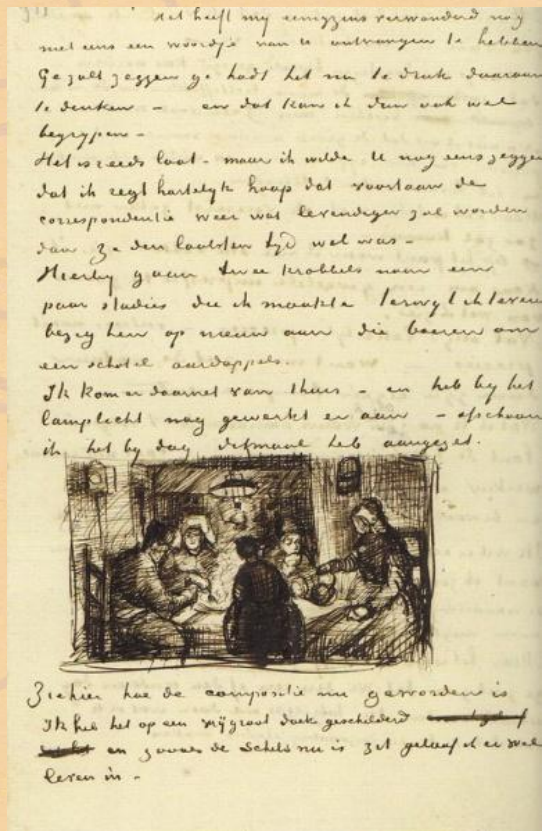 Het heeft my eenigzins verwonderd nog
niet eens een woordje van U ontvangen te hebben
Ge zult zeggen ge hadt het nu te druk daaraan
te denken – en dat kan ik dan ook wel
begrypen –
Het is reeds laat – maar ik wilde U nog eens zeggen
dat ik regt hartelyk hoop dat voortaan de
correspondentie weer wat levendiger zal worden
dan ze den laatsten tyd wel was –
Hierby gaan twee krabbels naar een
paar studies die ik maakte terwyl ik tevens
bezig ben op nieuw aan die boeren om
een schotel aardappels.
Ik kom er daarnet van thuis – en heb by het
lamplicht nog gewerkt er aan – ofschoon
ik het by dag ditmaal heb aangezet.
Ziehier hoe de compositie nu geworden is
Ik heb het op een vrij groot doek geschilderd
en zooals de schets nu is zit geloof ik er wel
leven in –